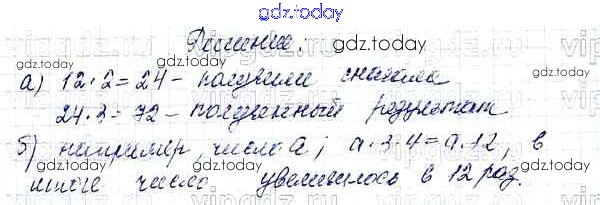 gdz.today
Решение:
gdz.today
gdz.today
а) 12·2=24 - получили сначала
24·3=72 - полученный результат
б) например, число а; а·3·4=а·12, в
итоге число увеличилось в 12 раз.
gdz.today